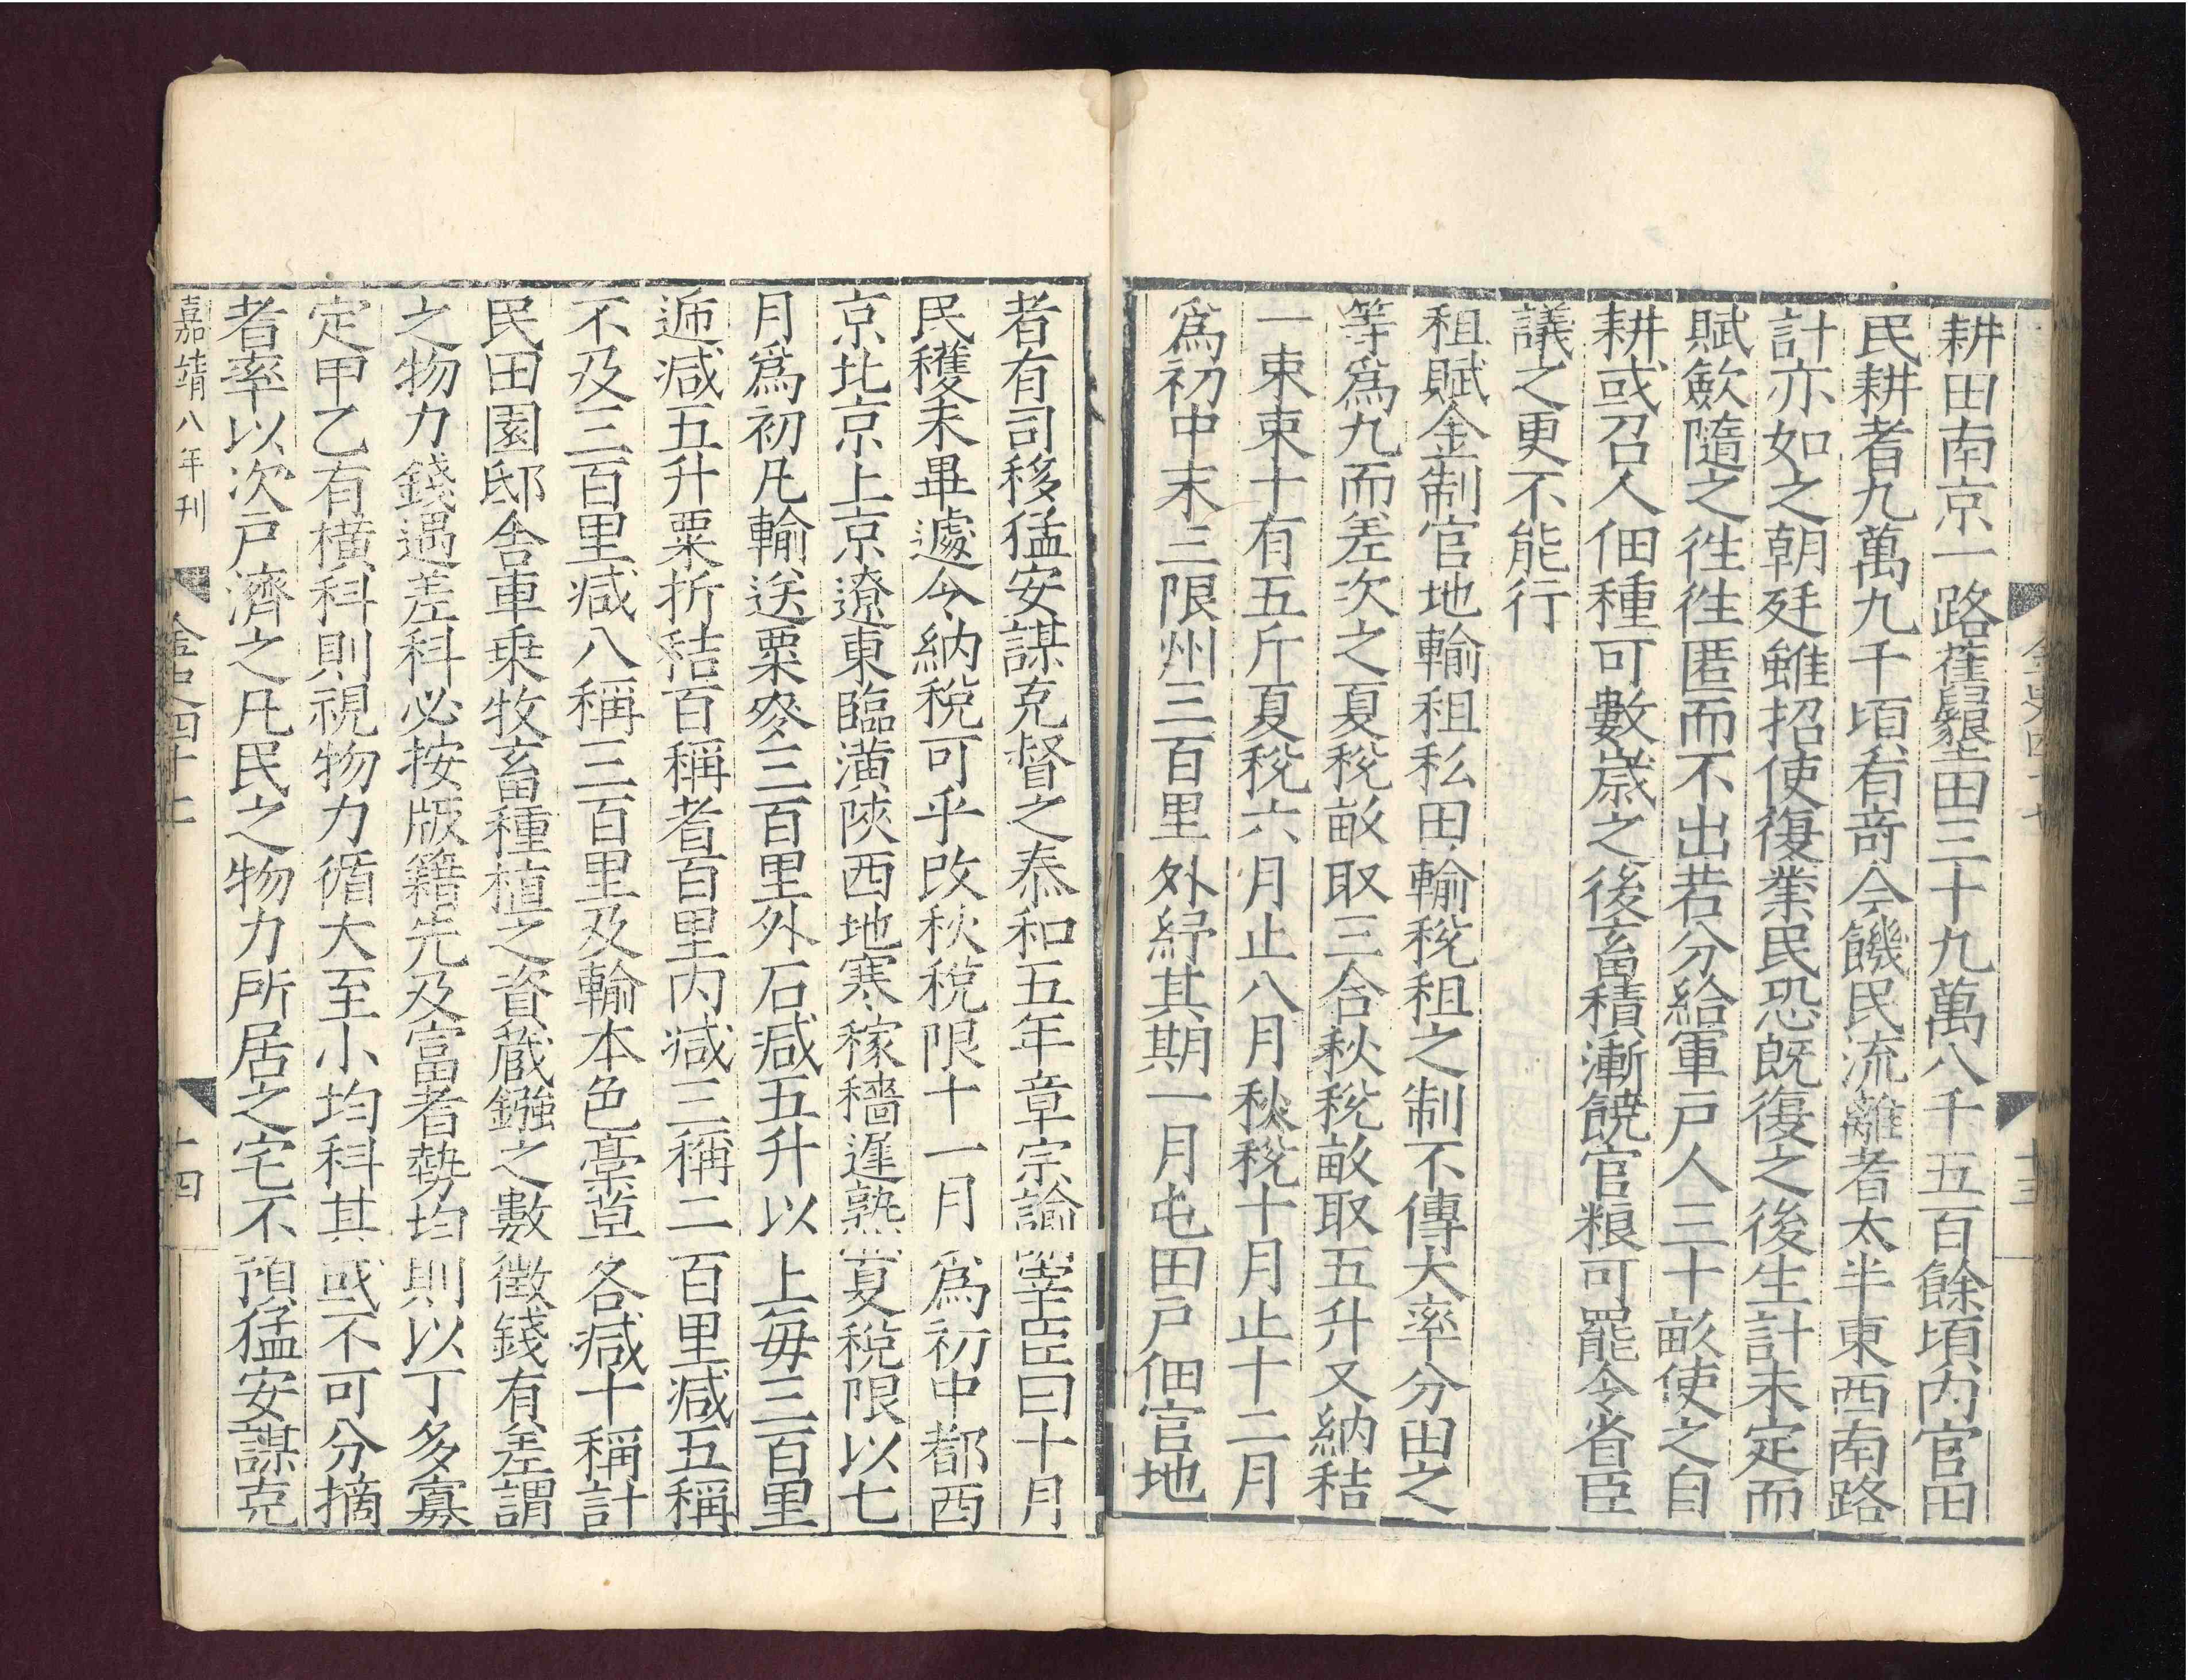 耕田南京一路舊墾田三十九萬八千五百餘頃內官田
民耕者九萬九千頃有奇今饑民流離者太半東西南路
計亦如之朝廷雖招使復業民恐旣復之後生計未定而
賦歛隨之徃徃匿而不出若分給軍戶人三十畝使之自
耕或召人佃種可數歲之後畜積漸饒官粮可罷令省臣
議之更不能行
租賦金制官地輸租私田輸稅租之制不傳大率分田之
等爲九而差次之夏稅畝取三合秋稅畝取五升又納秸
一束束十有五斤夏稅六月止八月秋稅十月止十二月
爲初中末三限州三百里外紓其期一月屯田戶佃官地
者有司移猛安謀克督之泰和五年章宗諭宰臣曰十月
民穫未畢遽令納稅可乎改秋稅限十一月爲初中都西
京北京上京遼東臨潢陝西地寒稼穡遲熟夏稅限以七
月爲初凡輸送粟麥三百里外石减五升以上每三百里
逓减五升粟折秸百稱者百里內减三稱二百里减五稱
不及三百里减八稱三百里及輸本色藁草各减十稱計
民田園邸舍車乗牧畜種植之資藏鏹之數徵錢有差謂
之物力錢遇差科必按版籍先及富者勢均則以丁多寡
定甲乙有橫科則視物力循大至小均科其或不可分摘
者率以次戶濟之凡民之物力所居之宅不預猛安謀克
嘉靖八年刊 金史四十七 十四